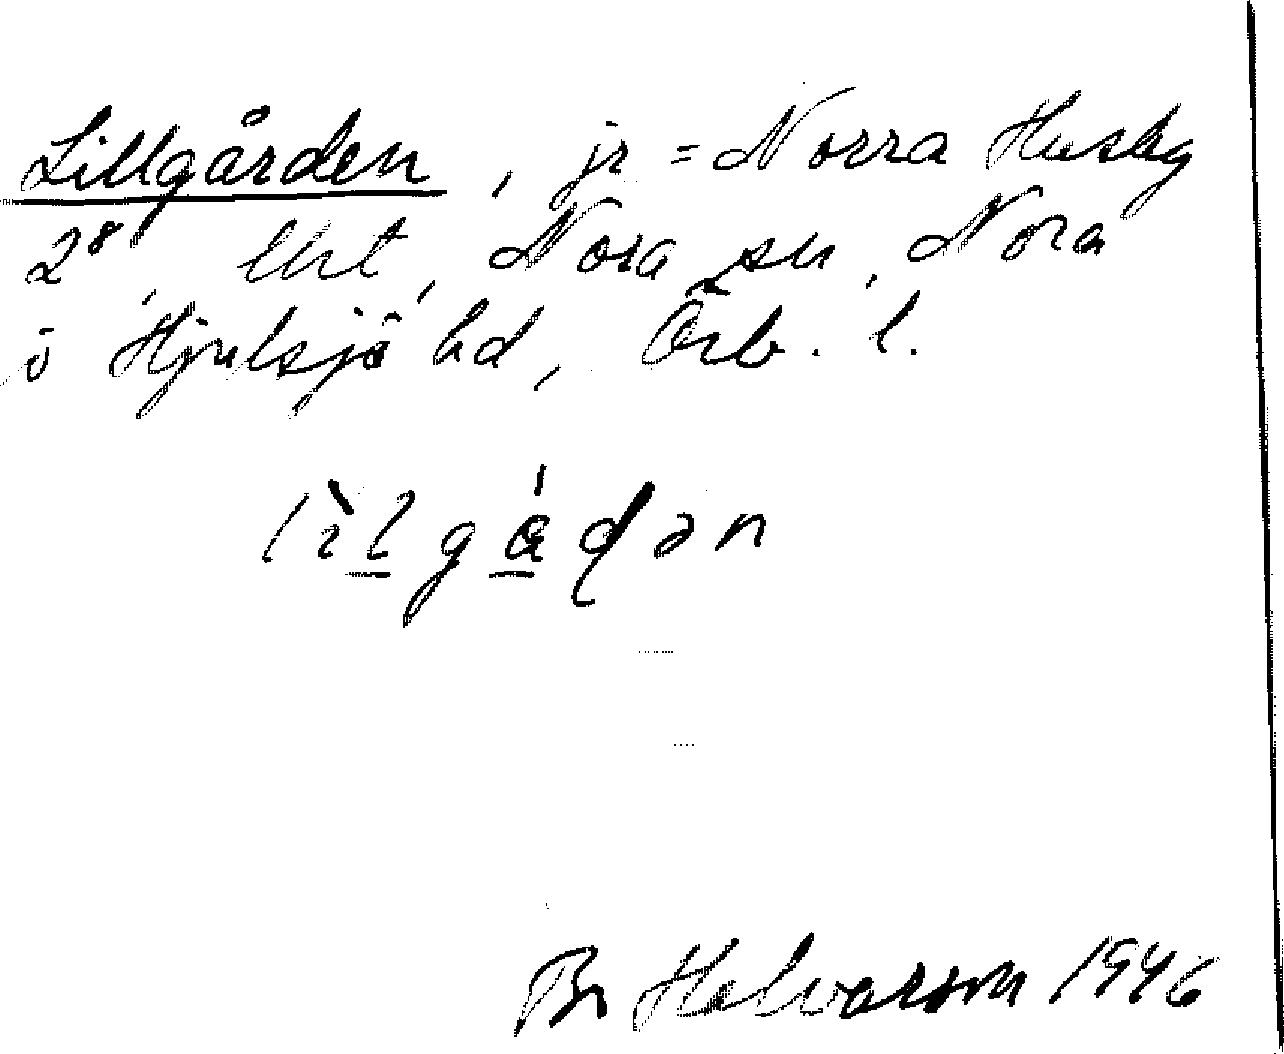 Lillgården, jr = Norra Husby
2⁸ Urt, Nora sn, Nora
o Hjulsjö hd, Örb. l.
lìlgɑ́ɖən
Br Halvarson 1946